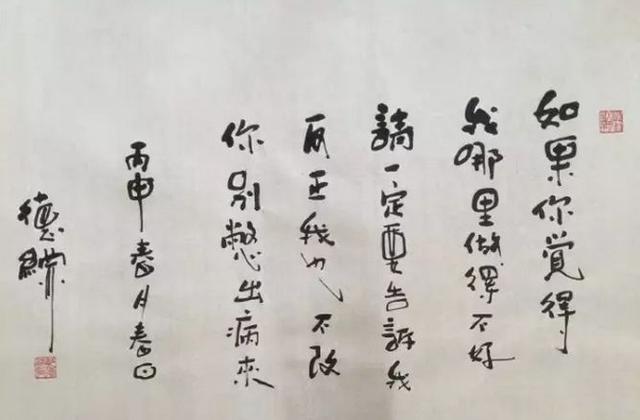 如果你覺得
我哪里做得不好
請一定要告訴我
反正我也不改
你別憋出病來
丙申春月春日
德綱